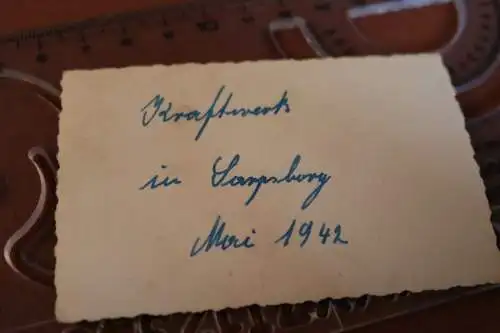 Kraftwerk
in Sarpsborg
Mai 1942